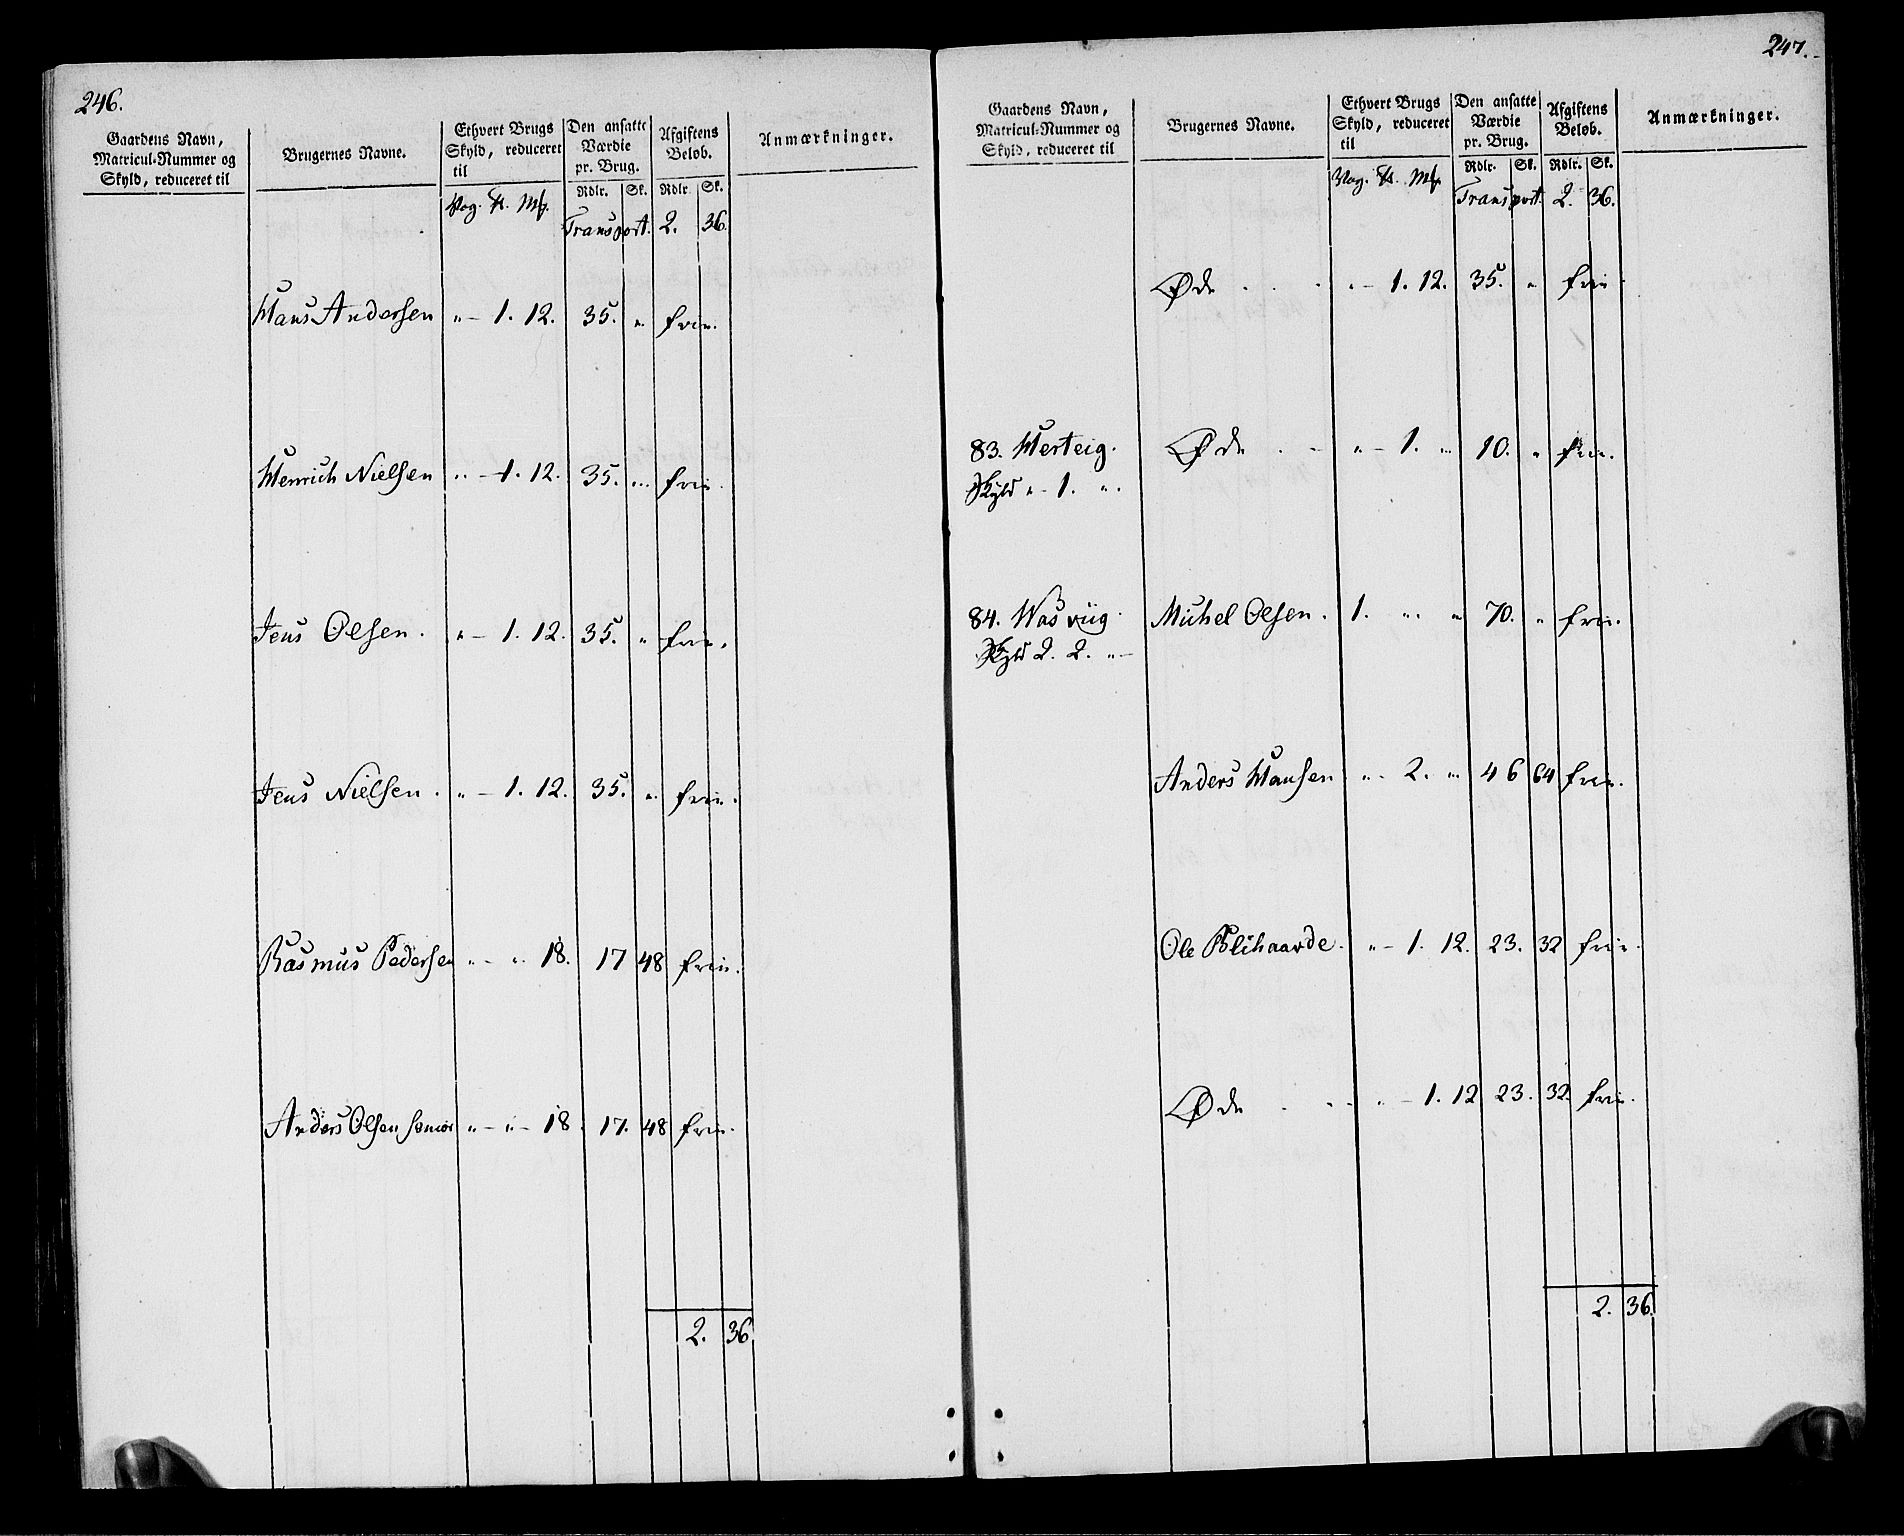 246.
Gaardens Navn, Matricul-Nummer og Skyld, reduceret til
Brugernes Navne.
Ethvert Brugs Skyld, reduceret til
Den ansatte Værdie pr. Brug.
Afgiftens Beløb.
Anmærkninger.
Rdlr. Sk. Rdlr. Sk.
Vog. ℔. Mk.
Transport. 2. 36.
Hans Andersen „ - 1. 12. 35. „ frie.
Henrich Nielsen „ - 1. 12. 35. „ frie.
Jens Olsen. „ - 1. 12. 35. „ frie.
Jens Nielsen. „ - 1. 12. 35. „ frie.
Rasmus Pedersen „ - „ 18. 17 48 frie.
Anders Olsen senior „ - „ - 18. 17. 48 frie.
2. 36
247.
Gaardens Navn, Matricul-Nummer og Skyld, reduceret til
Brugernes Navne.
Ethvert Brugs Skyld, reduceret til
Den ansatte Værdie pr. Brug.
Afgiftens Beløb.
Anmærkninger.
Rdlr. Sk. Rdlr. Sk.
Vog. ℔. Mk.
Transport. 2. 36.
Øde . . . „ - 1. 12. 35. „ frie
83. Herteig. Øde . - „ - 1. „ 10. „ frie.
Skyld „ - 1. „.
84. Hasviig. Michel Olsen. 1. „ „ 70. „ frie.
Skyld 2. 2. „ -
Anders Hansen „ - 2. „ 46 64 frie.
Ole Blihaarde. „ - 1. 12. 23. 32 frie.
Øde . - - „ - 1. 12 23. 32. frie.
2. 36.